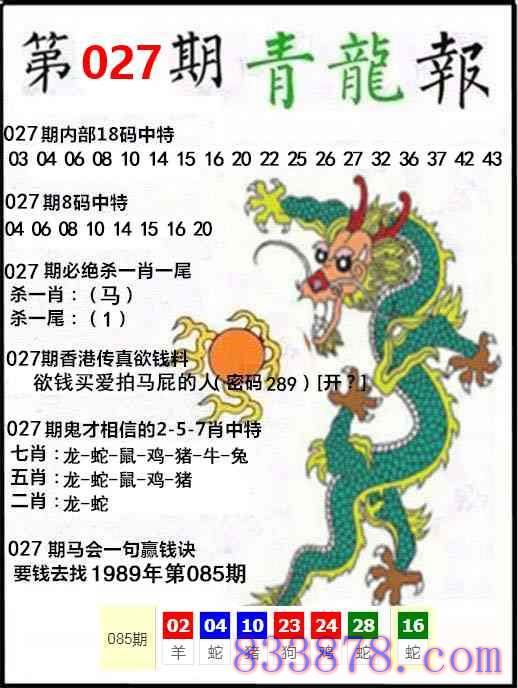 第027期 青龍報
027期内部18码中特
03 04 06 08 10 14 15 16 20 22 25 26 27 32 36 37 42 43
027期8码中特
04 06 08 10 14 15 16 20
027 期必绝杀一肖一尾
杀一肖：（马）
杀一尾：（1）
027期香港传真欲钱料
欲钱买爱拍马屁的人(密码289）[开？]
027期鬼才相信的2-5-7肖中特
七肖：龙-蛇-鼠-鸡-猪-牛-兔
五肖：龙-蛇-鼠-鸡-猪
二肖：龙-蛇
027 期马会一句赢钱诀
要钱去找1989年第085期
085期 02 04 10 23 24 28 16
羊 蛇 猪 狗 鸡 蛇 蛇
833878.com